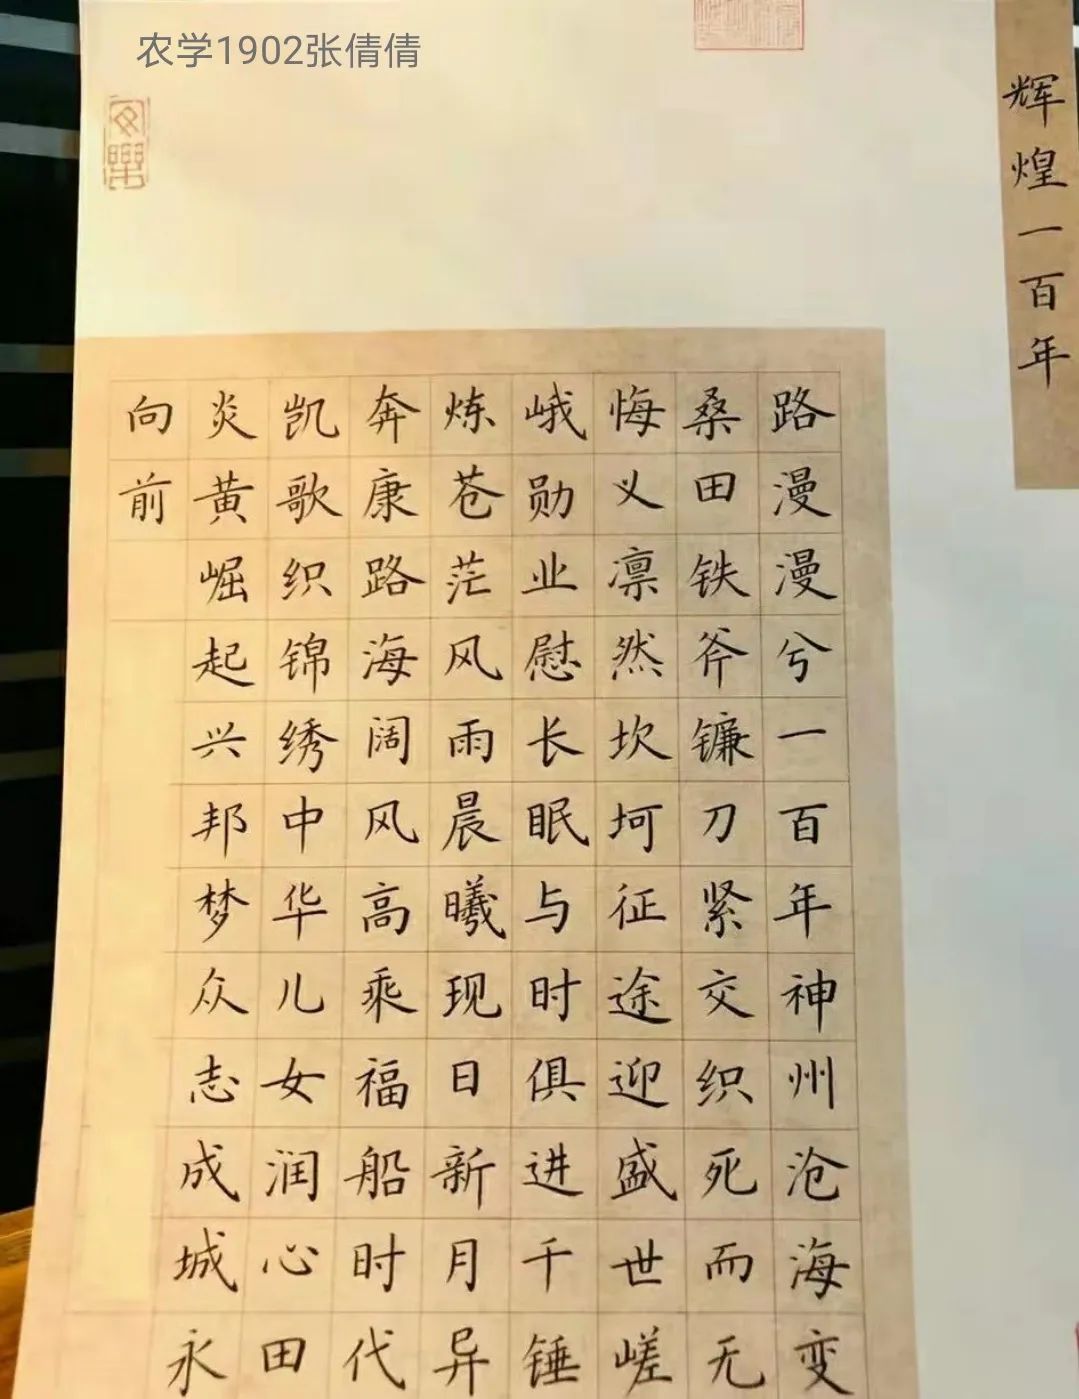 农学1902张倩倩
辉煌一百年
路漫漫兮一百年神州沧海变
桑田铁斧镰刀紧交织死而无
悔义凛然坎坷征途迎盛世嵯
峨勋业慰长眠与时俱进千锤
炼苍茫风雨晨曦现日新月异
奔康路海阔风高乘福船时代
凯歌织锦绣中华儿女润心田
炎黄崛起兴邦梦众志成城永
向前